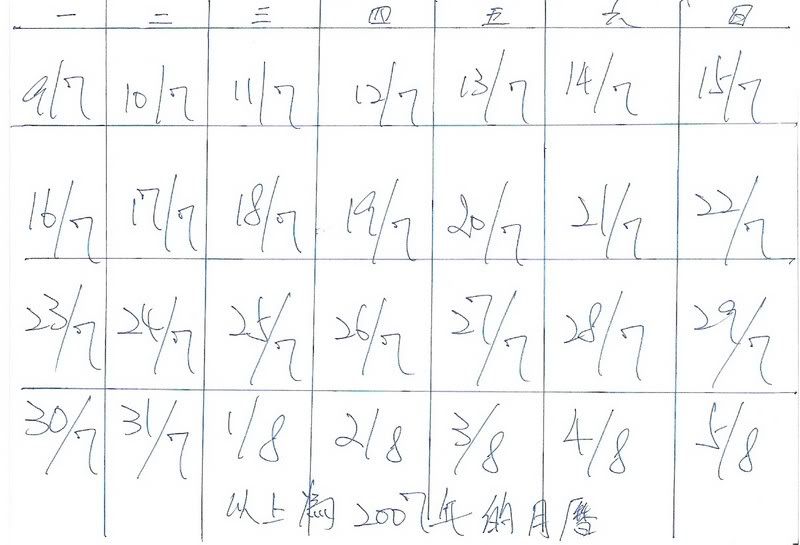 一 二 三 四 五 六 日
9/7 10/7 11/7 12/7 13/7 14/7 15/7
16/7 17/7 18/7 19/7 20/7 21/7 22/7
23/7 24/7 25/7 26/7 27/7 28/7 29/7
30/7 31/7 1/8 2/8 3/8 4/8 5/8
以上為2007年的月曆